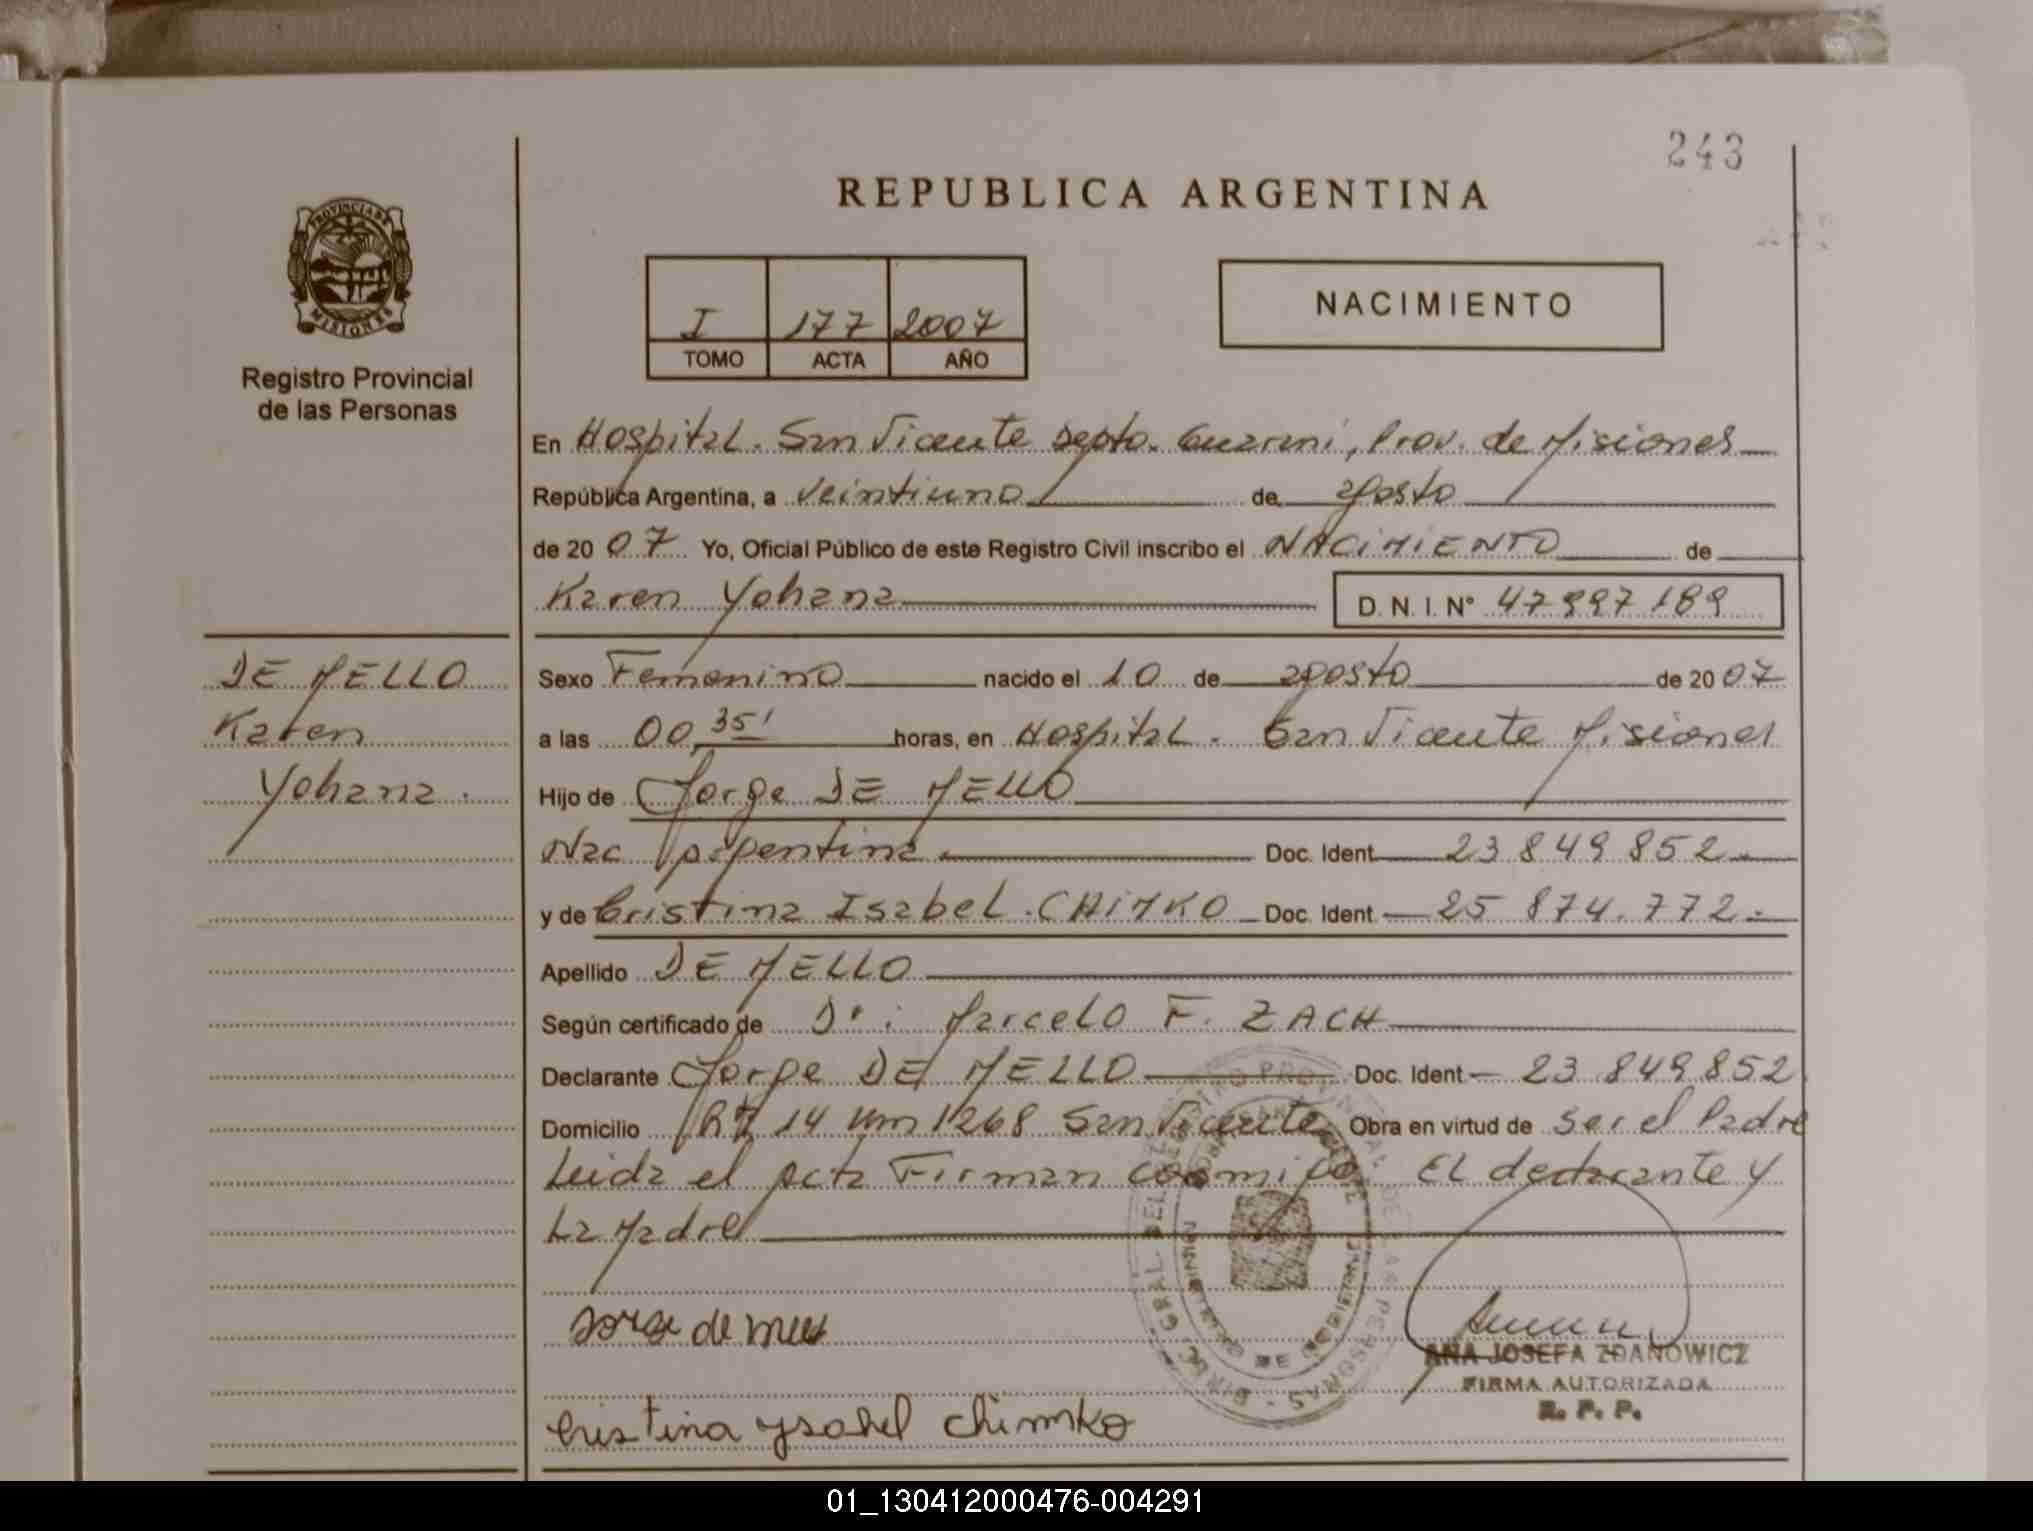 243
REPUBLICA ARGENTINA
PROVINCIA DE
MISIONES
Registro Provincial
de las Personas
I 177 2007
TOMO ACTA AÑO
NACIMIENTO
En Hospital. San Vicente Depto. Guarani, Prov. de Misiones
República Argentina, a veintiuno de agosto
de 20 07 Yo, Oficial Público de este Registro Civil inscribo el NACIMIENTO de
Karen Yohana D. N. I. N° 47997189
DE MELLO
Karen
Yohana.
Sexo Femenino nacido el 10 de agosto de 20 07
a las 00,35' horas, en Hospital. San Vicente Misiones
Hijo de Jorge DE MELLO
Nac Argentina Doc. Ident 23 849 852.
y de Cristina Isabel. CHIMKO Doc. Ident. 25 874.772.
Apellido DE MELLO
Según certificado de Dr: Marcelo F. ZACH
Declarante Jorge DE MELLO Doc. Ident. 23 849852
Domicilio 14 km 1268 San Vicente Obra en virtud de ser el Padre
Leida el acta Firman conmigo EL declarante y
La Madre
Jorge de
ANA JOSEFA ZDANOWICZ
FIRMA AUTORIZADA
R. P. P.
Cristina ysabel Chimko
01_130412000476-004291